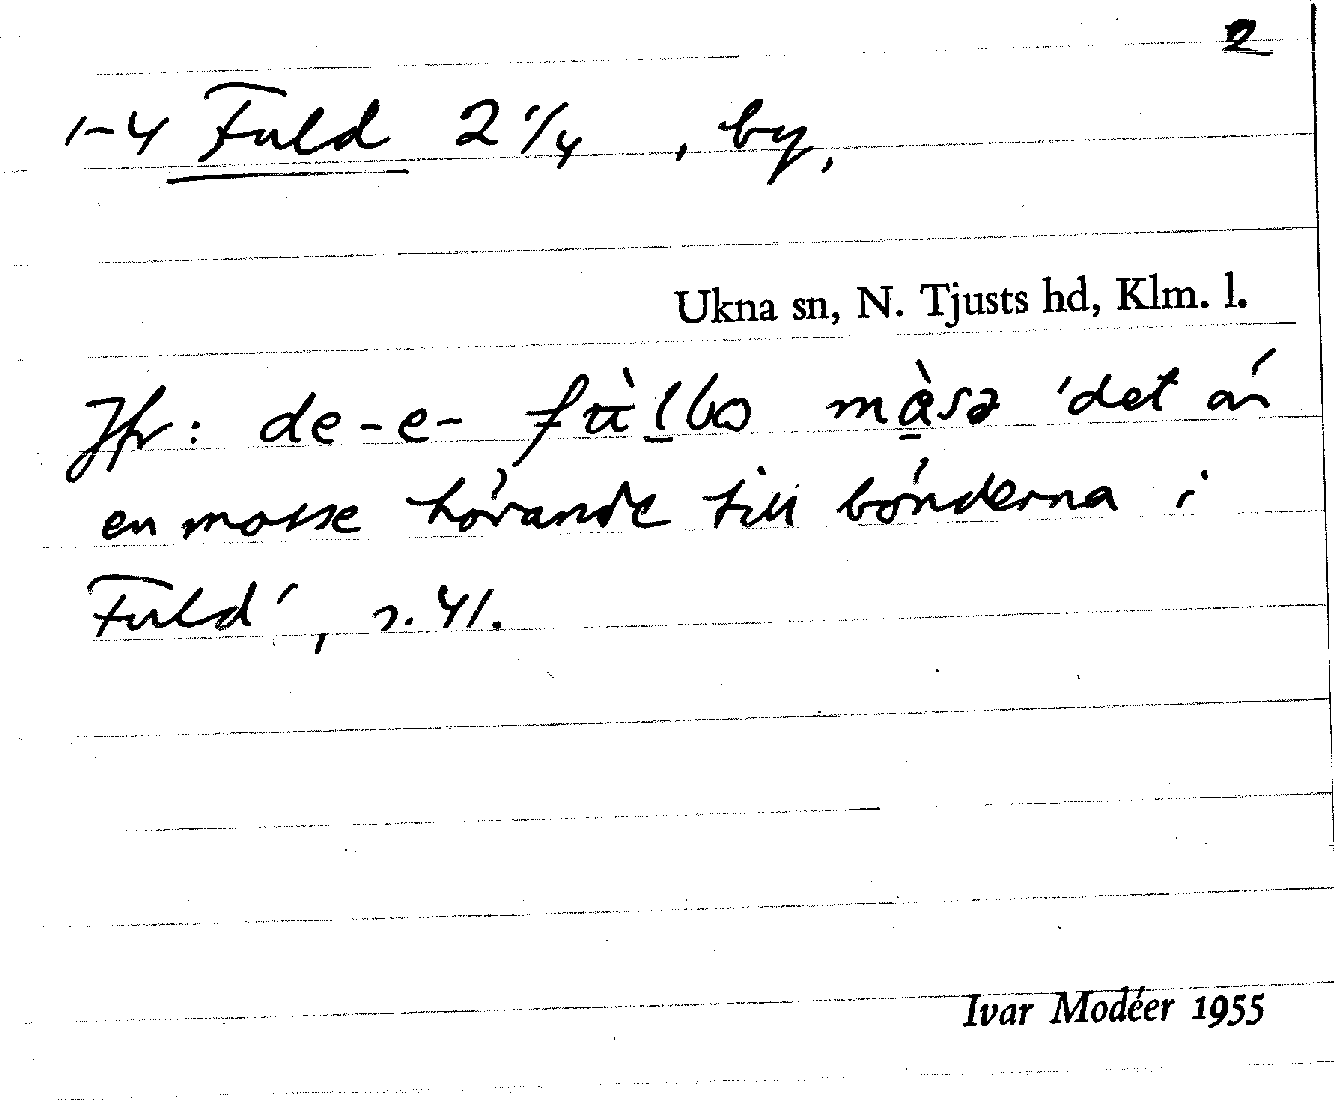 2
1-4 Fuld 2 1/4 , by,
Ukna sn, N. Tjusts hd, Klm. l.
Jfr: de-e- mὰsə 'det är
en mosse hörande till bönderna i
Fuld', s. 41.
Ivar Modéer 1955